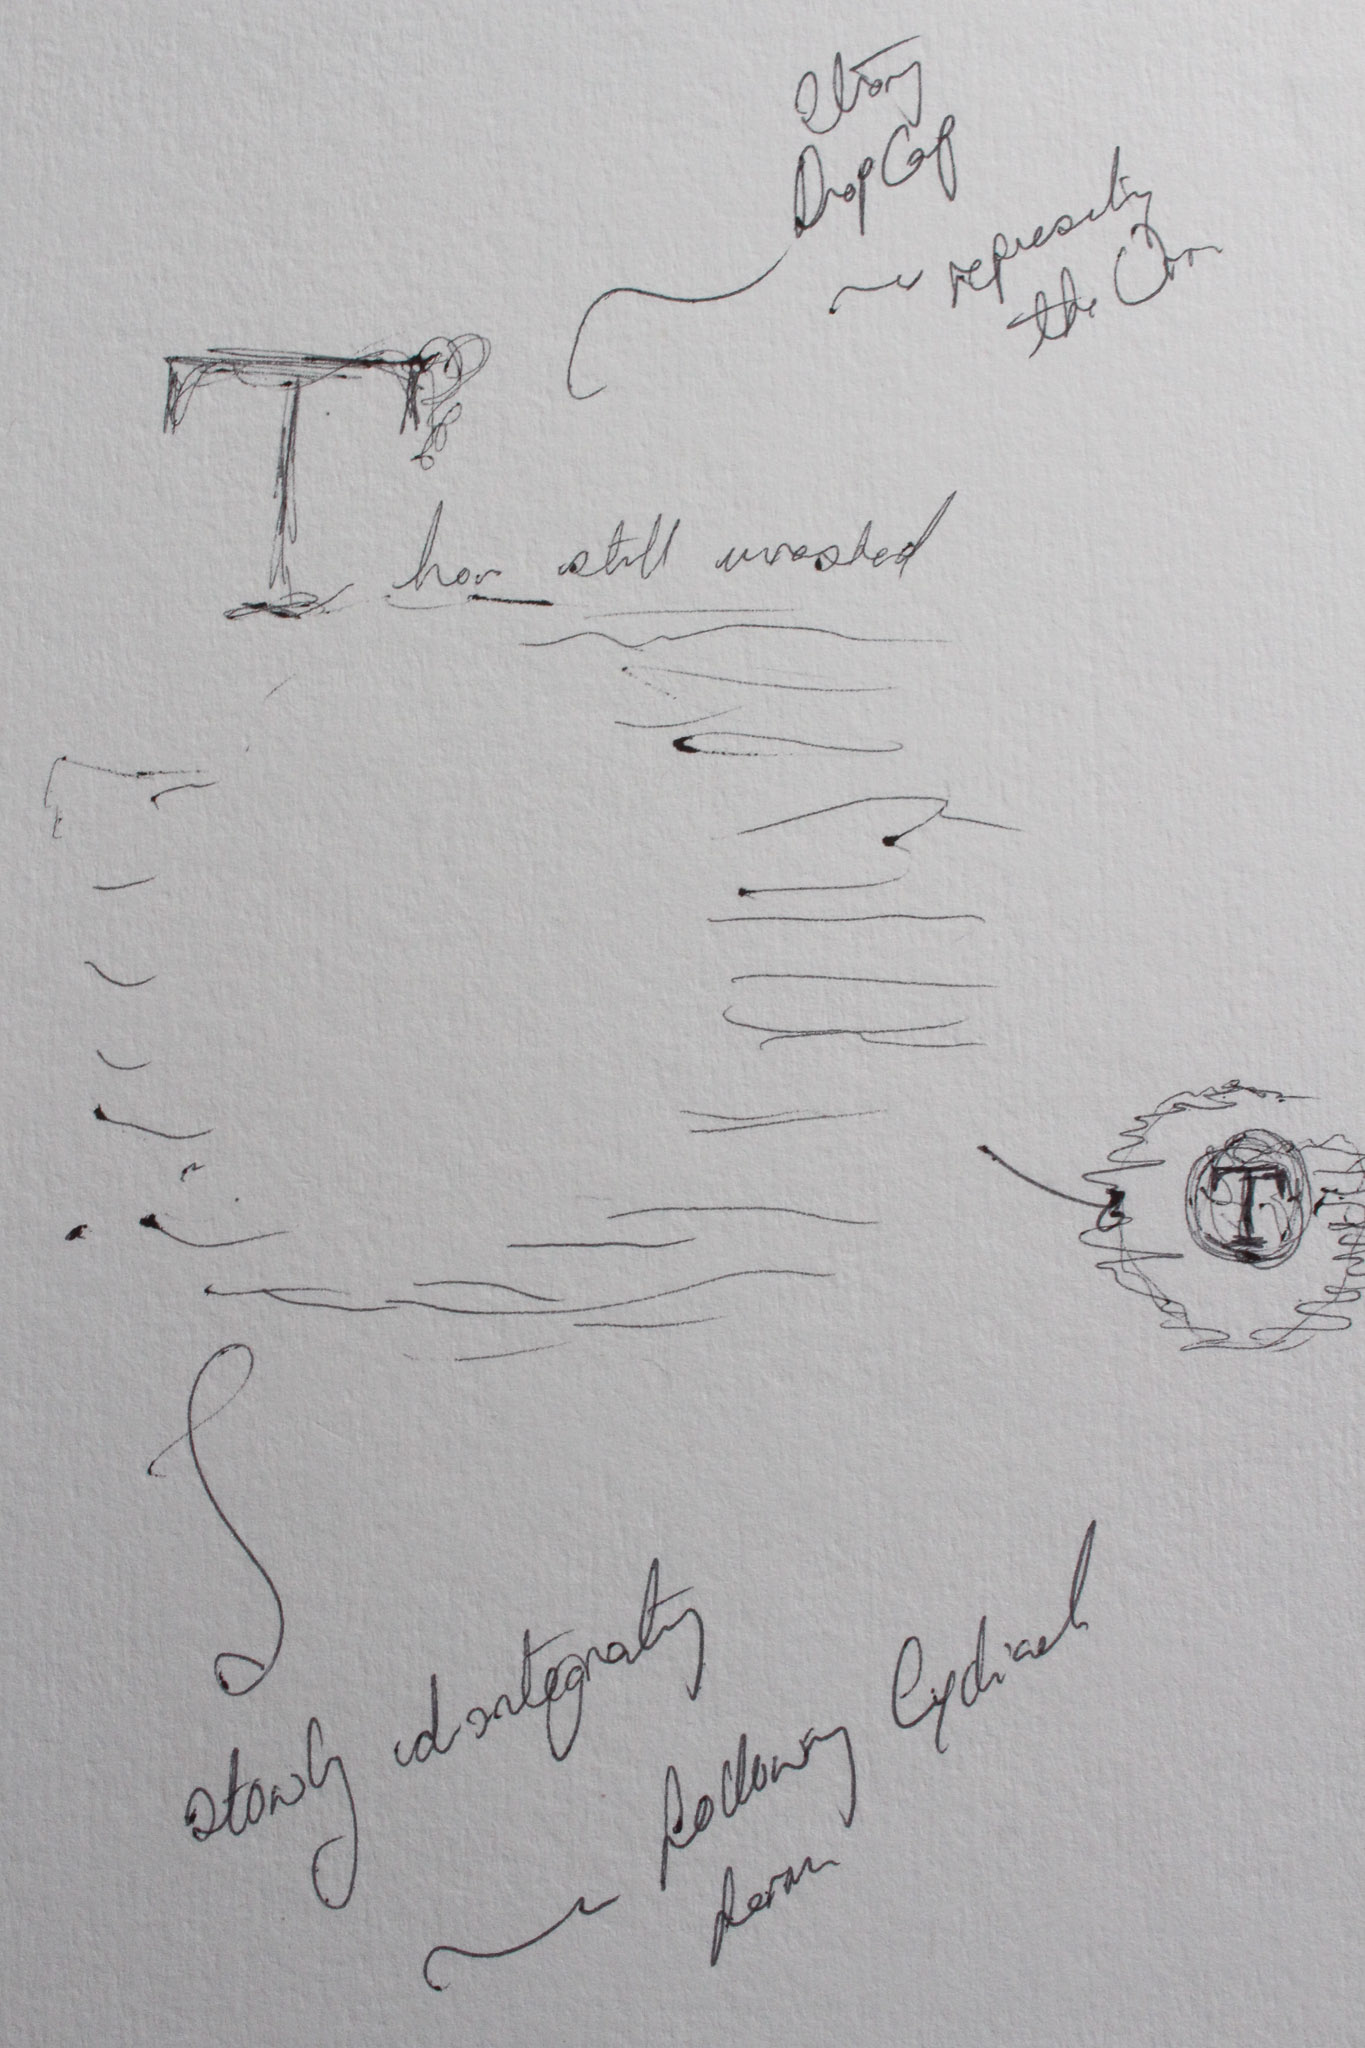 Strong
Drop Cap
~ representing
the Urn
Thou still unravished
T
slowly disintegrating
~ following Cyclical
form